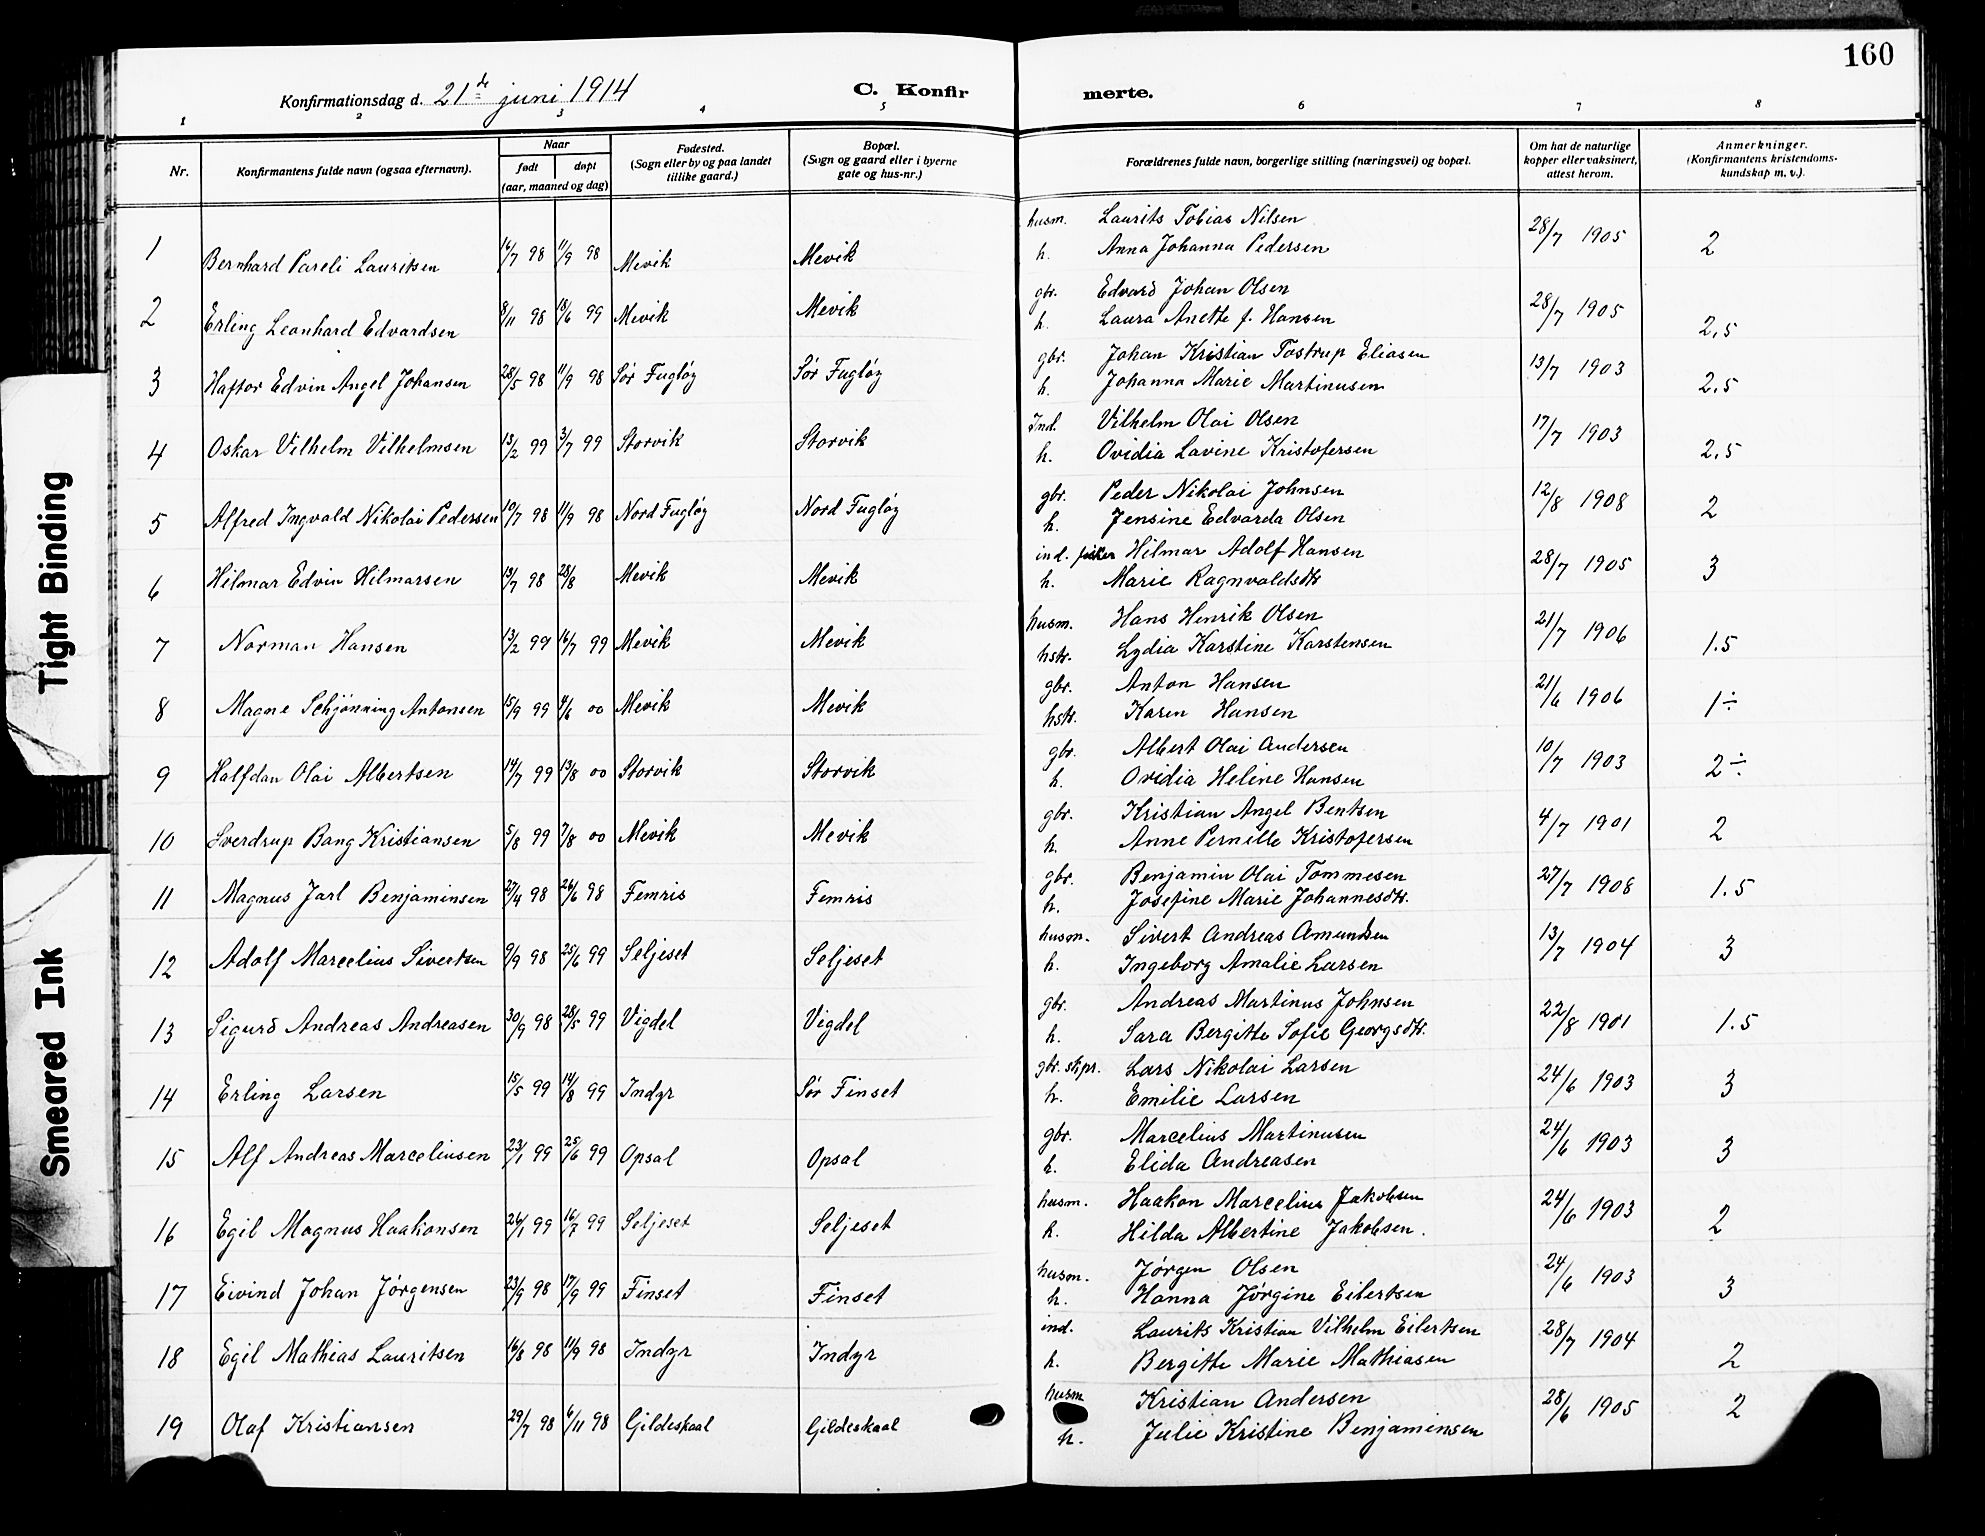 160
Konfirmationsdag d. 21de juni 1914 C. Konfirmerte.
1 2 3 4 5 6 7 8
Nr. Konfirmantens fulde navn (ogsaa efternavn). Naar født døpt (aar, maaned og dag) Fødested. (Sogn eller by og paa landet tillike gaard.) Bopæl. (Sogn og gaard eller i byerne gate og hus-nr.) Forældrenes fulde navn, borgerlige stilling (næringsvei) og bopæl. Om hat de naturlige kopper eller vaksinert, attest herom. Anmerkninger. (Konfirmantens kristendoms-kundskap m. v.).
husm. Laurits Tobias Nilsen
1 Bernhard Pareli Lauritsen 16/7 98 11/9 98 Mevik Mevik h. Anna Johanna Pedersen 28/7 1905 2
gbr. Edvard Johan Olsen
2 Erling Leonhard Edvardsen 8/11 98 18/6 99 Mevik Mevik h. Laura Anette f. Hansen 28/7 1905 2,5
gbr. Johan Kristian Tostrup Eliasen
3 Haftor Edvin Angel Johansen 28/5 98 11/9 98 Sør Fugløy Sør Fugløy h. Johanna Marie Martinusen 13/7 1903 2.5
Ind. Vilhelm Olai Olsen
4 Oskar Vilhelm Vilhelmsen 13/2 99 3/7 99 Storvik Storvik h. Ovidia Lavine Kristofersen 17/7 1903 2.5
gbr. Peder Nikolai Johnsen
5 Alfred Ingvald Nikolai Pedersen 10/7 98 11/9 98 Nord Fugløy Nord Fugløy h. Jensine Edvarda Olsen 12/8 1908 2
ind. fisker Hilmar Adolf Hansen
6 Hilmar Edvin Hilmarsen 13/7 98 28/8 Mevik Mevik h. Marie Ragnvaldsdtr 28/7 1905 3
husm. Hans Henrik Olsen
7 Norman Hansen 13/2 99 16/7 99 Mevik Mevik hstr. Lydia Karstine Karstensen 21/7 1906 1.5
gbr. Anton Hansen
8 Magne Schjønning Antonsen 15/9 99 4/6 00 Mevik Mevik hstr. Karen Hansen 21/6 1906 1÷
gbr. Albert Olai Andersen
9 Halfdan Olai Albertsen 14/7 99 13/8 00 Storvik Storvik h. Ovidia Heline Hansen 10/7 1903 2÷
gbr. Kristian Angel Bentsen
10 Sverdrup Bang Kristiansen 5/8 99 7/8 00 Mevik Mevik h. Anne Pernille Kristofersen 4/7 1901 2
gbr. Benjamin Olai Tommesen
11 Magnus Jarl Benjaminsen 27/4 98 26/6 98 Femris Femris h. Josefine Marie Johannesdtr. 27/7 1908 1.5
husm. Sivert Andreas Amundsen
12 Adolf Marcelius Sivertsen 9/9 98 25/6 99 Seljeset Seljeset h. Ingeborg Amalie Larsen 13/7 1904 3
gbr. Andreas Martinus Johnsen
13 Sigurd Andreas Andreasen 30/9 98 28/5 99 Vigdel Vigdel h. Sara Bergitte Sofie Georgsdtr. 22/8 1901 1.5
gbr. skpr. Lars Nikolai Larsen
14 Erling Larsen 15/5 99 14/8 99 Indyr Sør Finset h. Emilie Larsen 24/6 1903 3
gbr. Marcelius Martinusen
15 Alf Andreas Marceliusen 23/1 99 25/6 99 Opsal Opsal h. Elida Andreasen 24/6 1903 3
husm. Haakon Marcelius Jakobsen
16 Egil Magnus Haakonsen 26/1 99 16/7 99 Seljeset Seljeset h. Hilda Albertine Jakobsen. 24/6 1903 2
husm. Jørgen Olsen
17 Eivind Johan Jørgensen 23/9 98 17/9 99 Finset Finset h. Hanna Jørgine Eilertsen 24/6 1903 3
ind. Laurits Kristian Vilhelm Eilertsen
18 Egil Mathias Lauritsen 16/8 98 11/9 98 Indyr Indyr h. Bergitte Marie Mathiasen 28/7 1904 2
husm Kristian Andersen
19 Olaf Kristiansen 29/7 98 6/11 98 Gildeskaal Gildeskaal h. Julie Kristine Benjaminsen 28/6 1905 2
Tight Binding
Smeared Ink